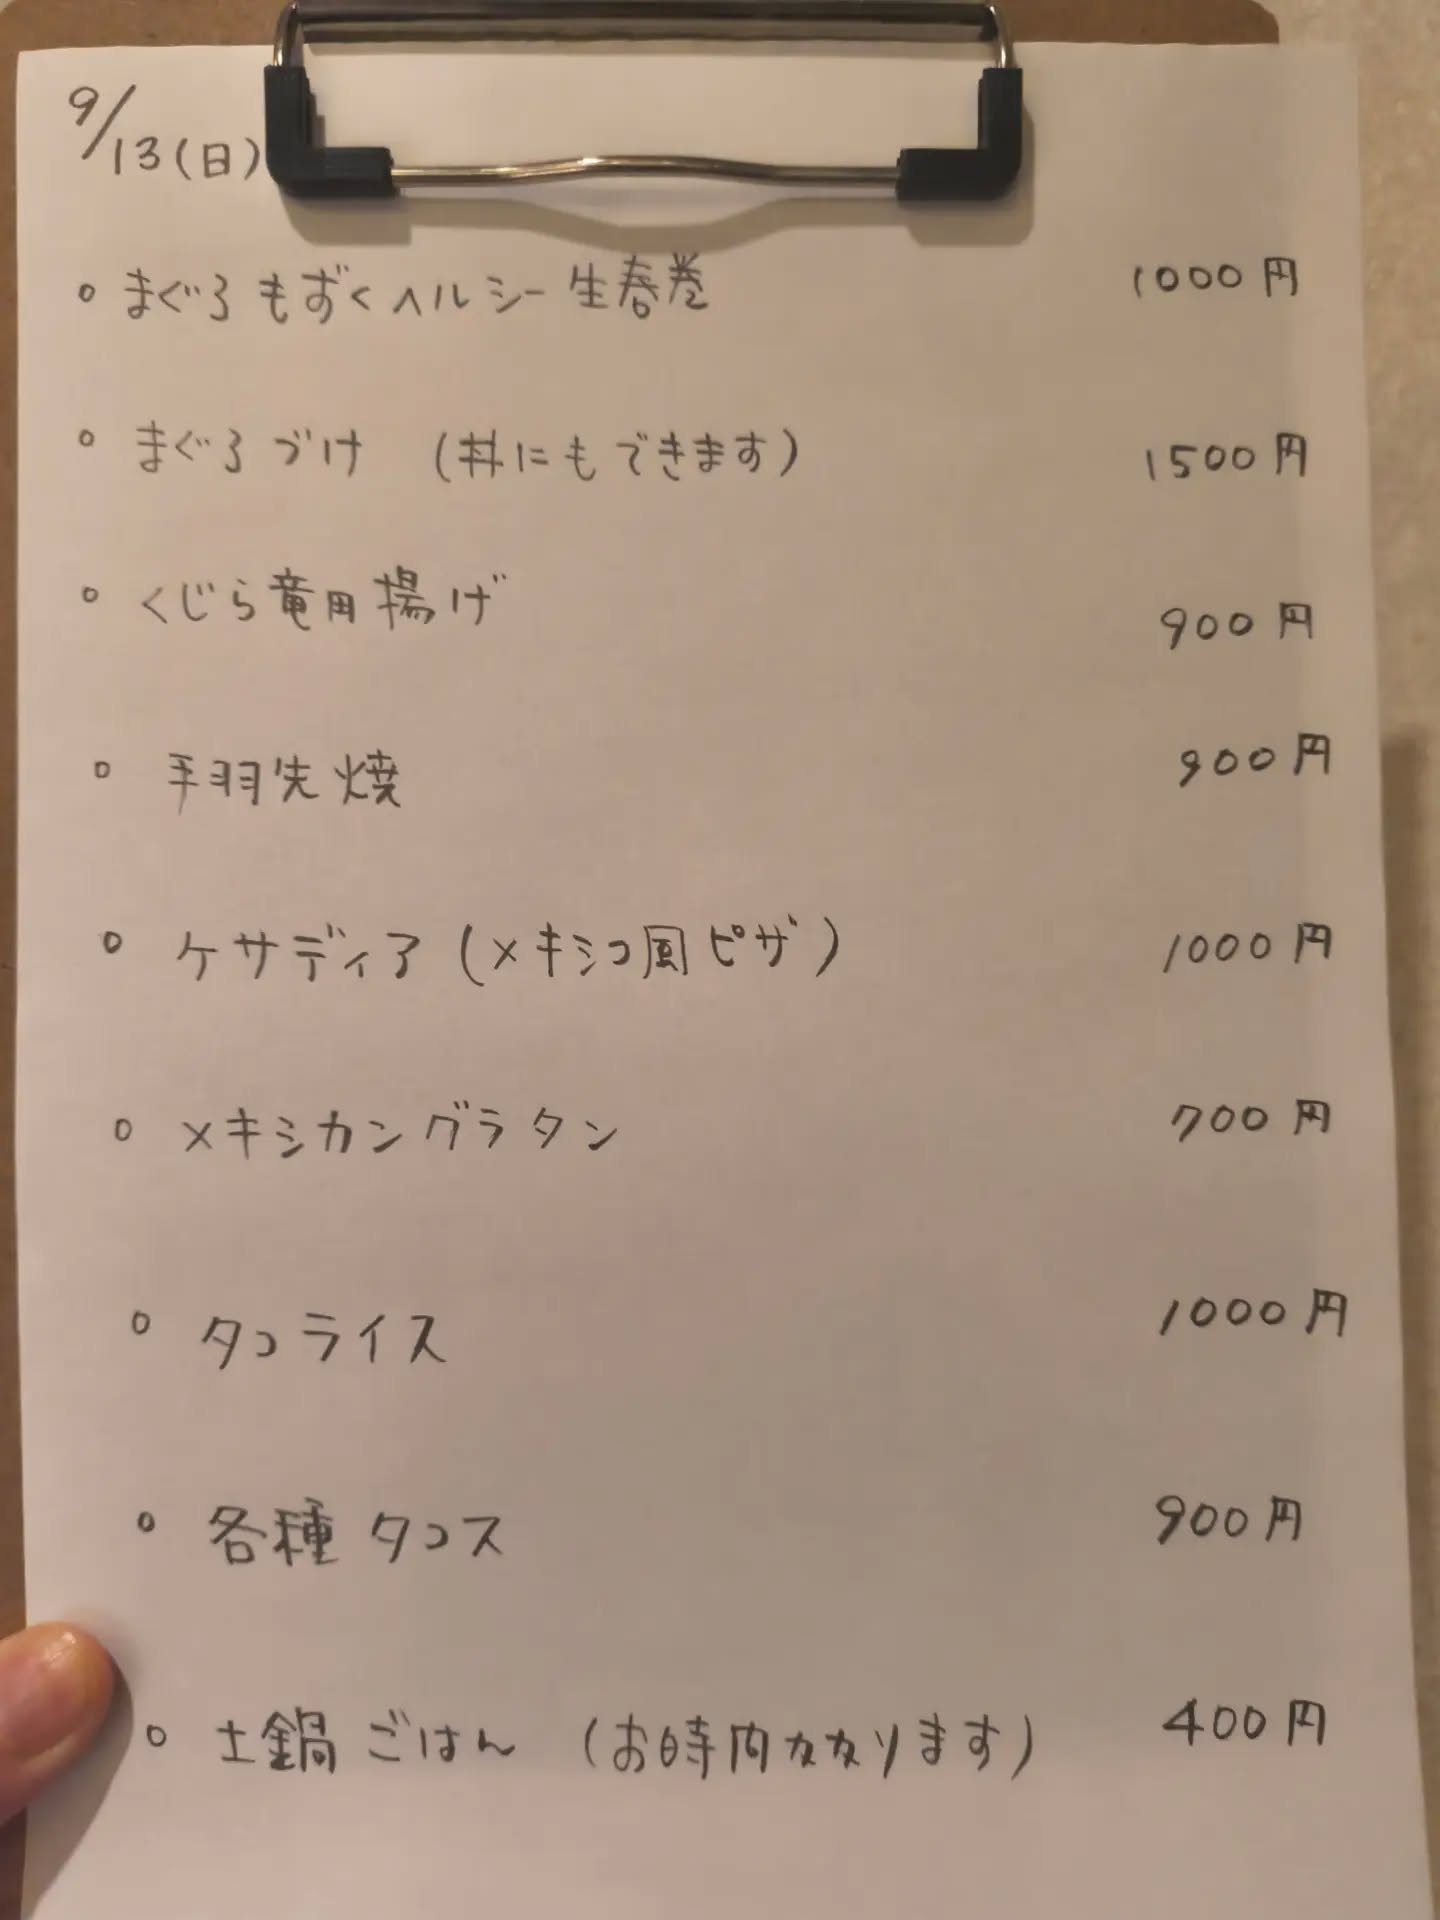 9/13(日)
○ まぐろもずくヘルシー生春巻 1000円
○ まぐろづけ (丼にもできます) 1500円
○ くじら竜田揚げ 900円
○ 手羽先焼 900円
○ ケサディア(メキシコ風ピザ) 1000円
○ メキシカングラタン 700円
○ タコライス 1000円
○ 各種タコス 900円
○ 土鍋ごはん (お時間かかります) 400円